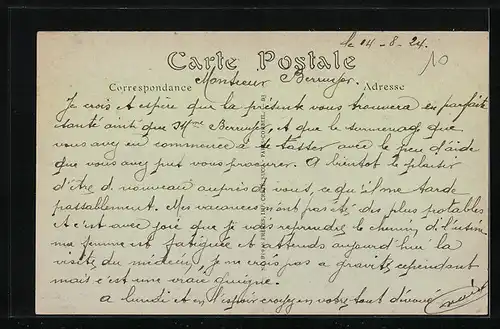 le 04-8-24.
10
Carte Postale
Correspondance
Adresse
Monsieur Berruyer.
Je crois et espère que la présente vous trouvera en parfaite
santé ainsi que Mme Berruyer, et que le surmenage que
vous avez eu commence à se tasser avec le peu d'aide
que vous avez pu vous procurer. A bientot le plaisir
d'être de nouveau auprès de vous, ce qu'il me tarde
passablement. Mes vacances n'ont pas été des plus potables
et c'est avec joie que je vais reprendre le chemin de l'usine
ma femme est fatiguée et attends aujourd'hui la
visite du médecin, je ne crois pas a gravité cependant
mais c'est une vraie guigne.
a lundi et en l'espoir croyez en votre tout dévoué